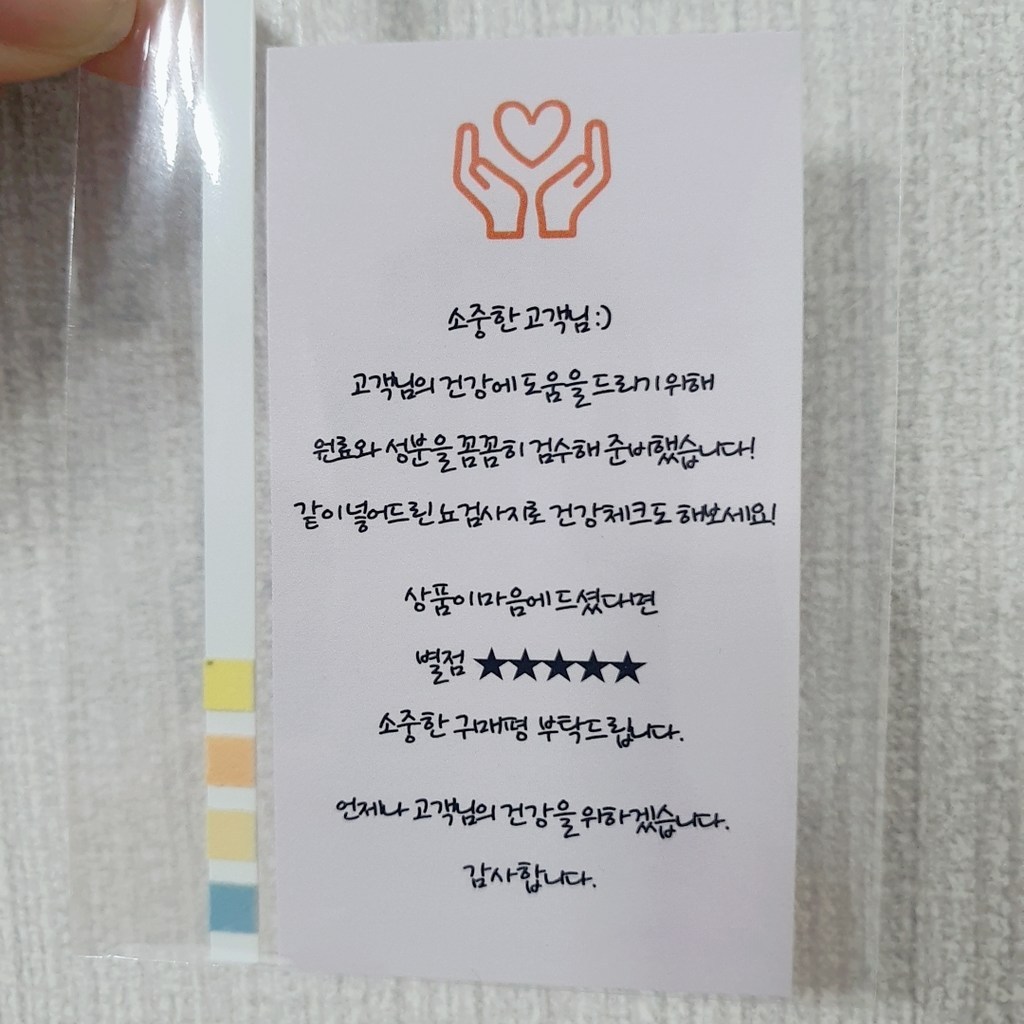 소중한 고객님:)
고객님의 건강에 도움을 드리기 위해
원료와 성분을 꼼꼼히 검수해 준비했습니다!
같이 넣어드린 뇨검사지로 건강체크도 해보세요!
상품이 마음에 드셨다면
별점 ★★★★★
소중한 구매평 부탁드립니다.
언제나 고객님의 건강을 위하겠습니다.
감사합니다.